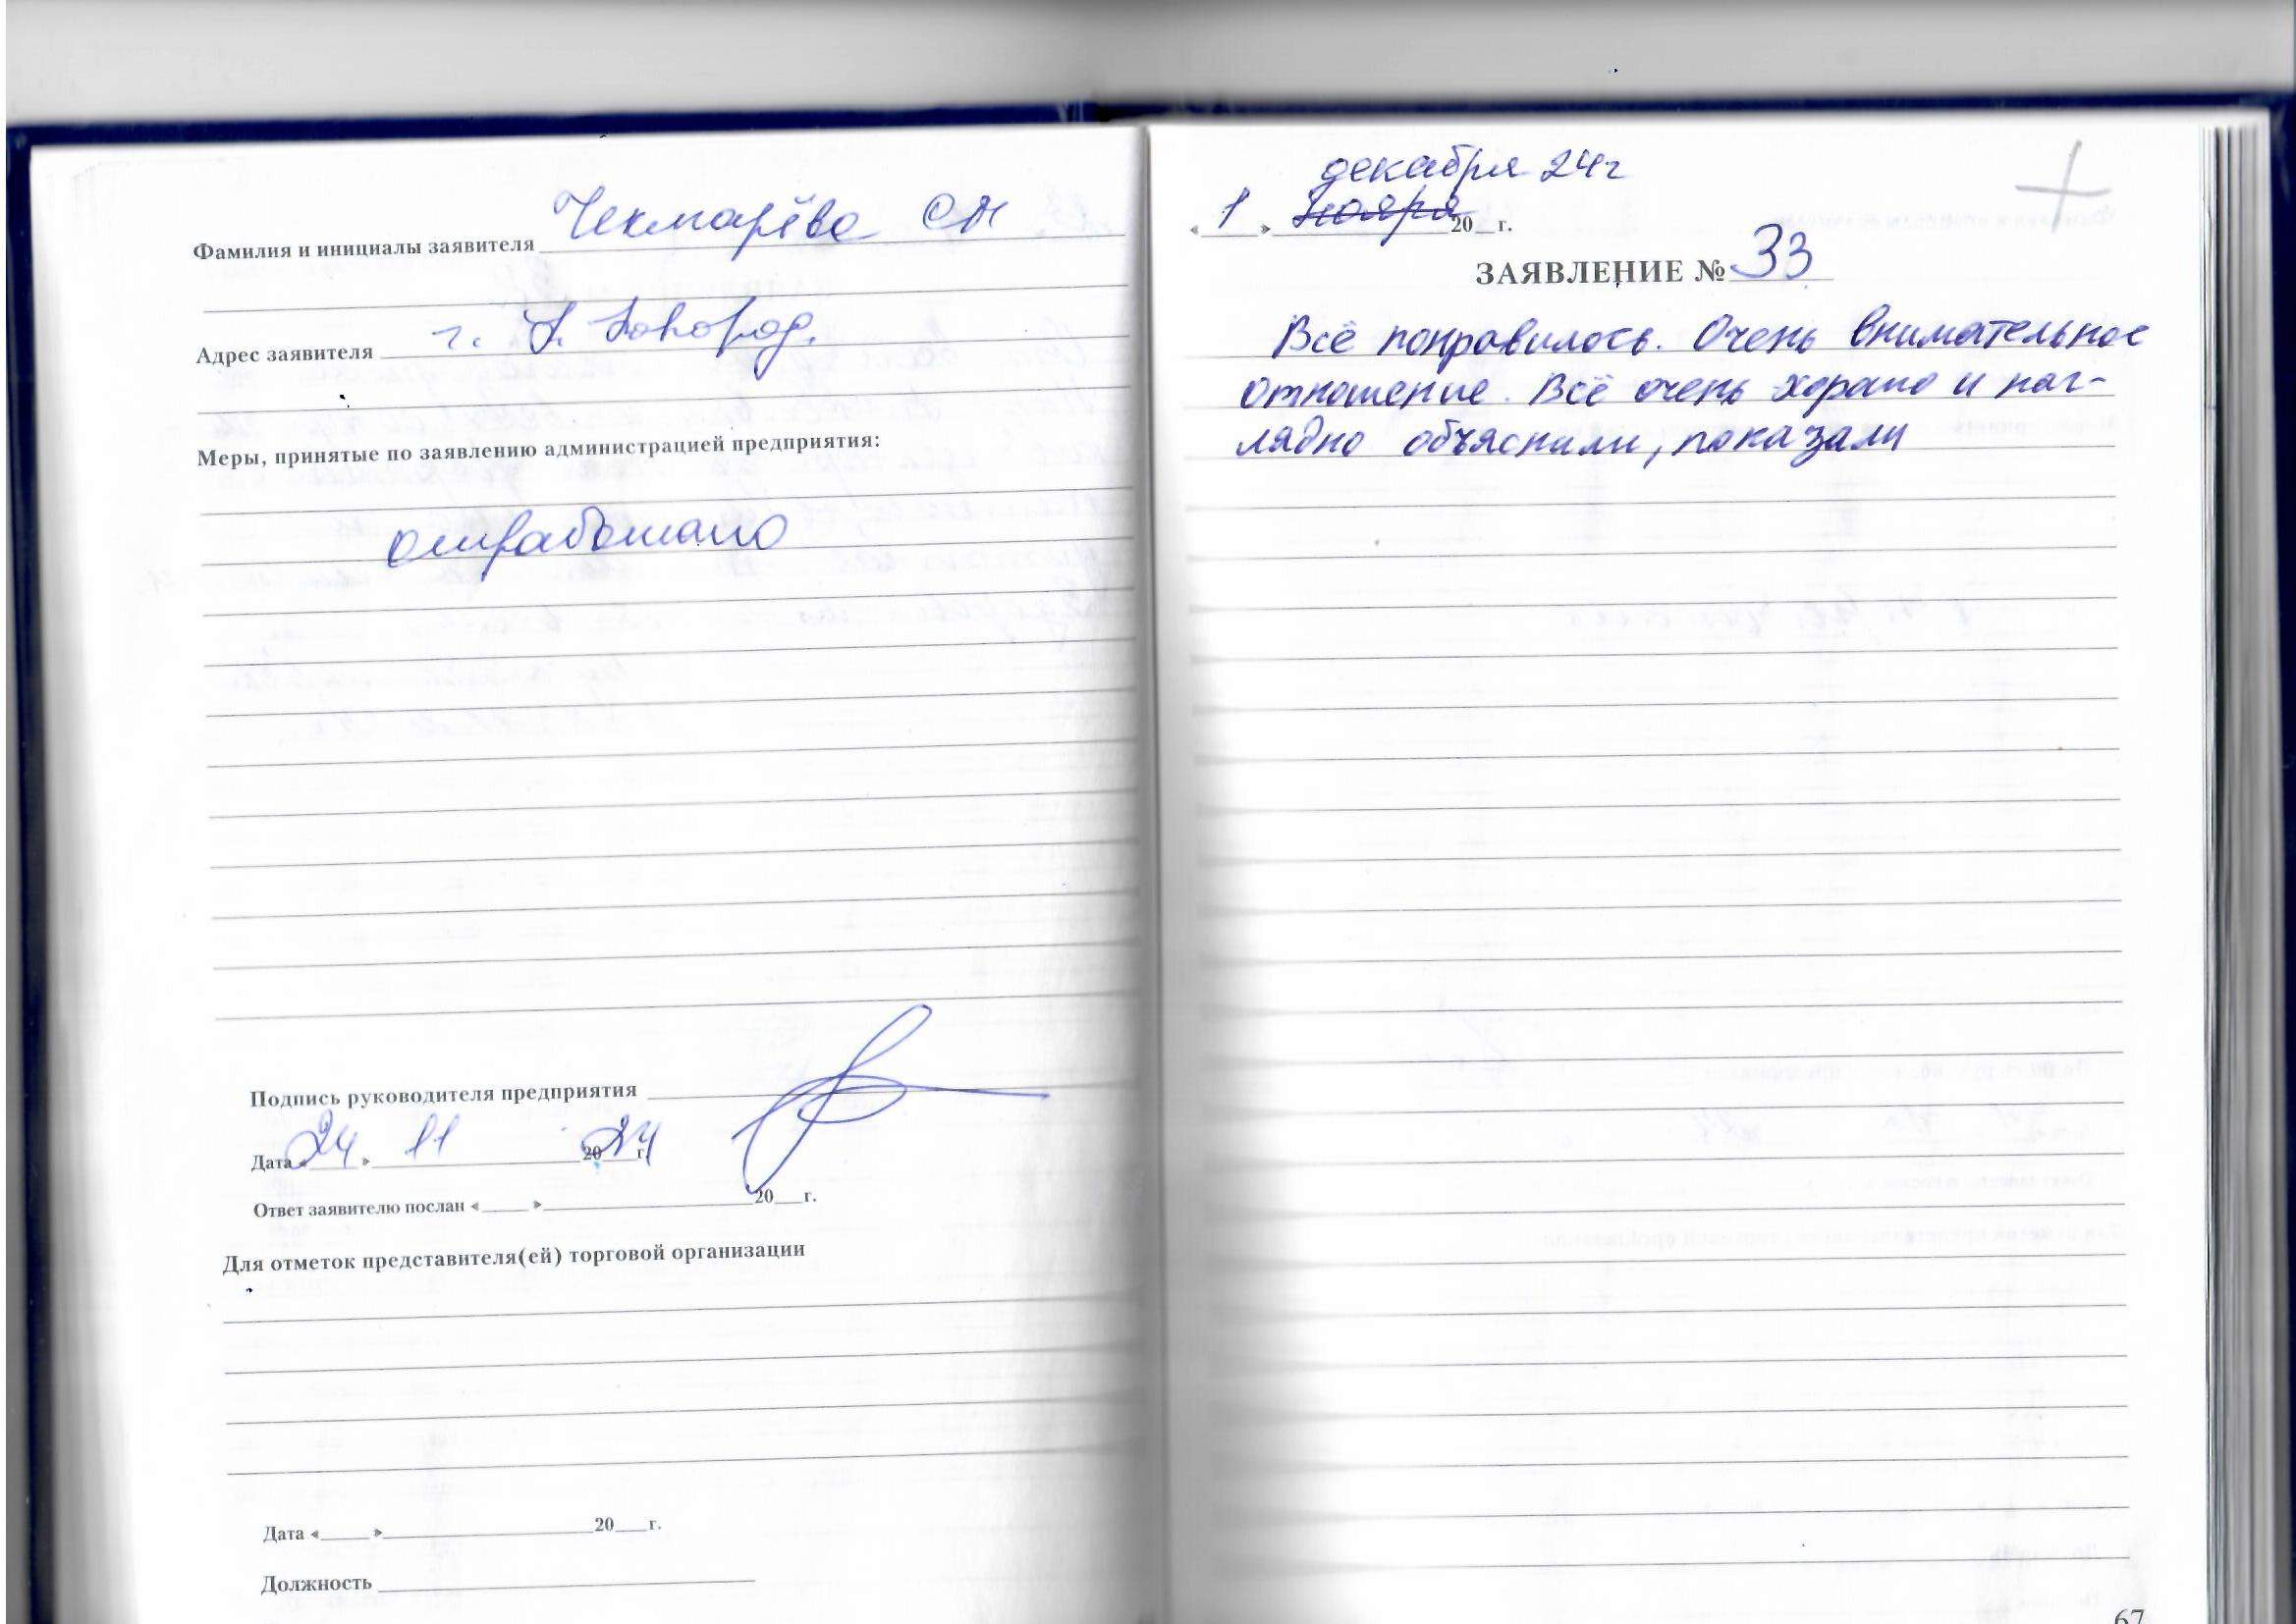 Фамилия и инициалы заявителя Чекмарёва СМ
Адрес заявителя г. Н. Новгород.
Меры, принятые по заявлению администрацией предприятия:
отработано
Подпись руководителя предприятия
Дата «24» 11 2024 г.
Ответ заявителю послан «____» ____ 20__г.
Для отметок представителя(ей) торговой организации
Дата «____» ____ 20__г.
Должность
декабря 24г
«1» ноября 20__г.
ЗАЯВЛЕНИЕ № 33
Всё понравилось. Очень внимательное
отношение. Всё очень хорошо и наг-
лядно объяснили, показали
67